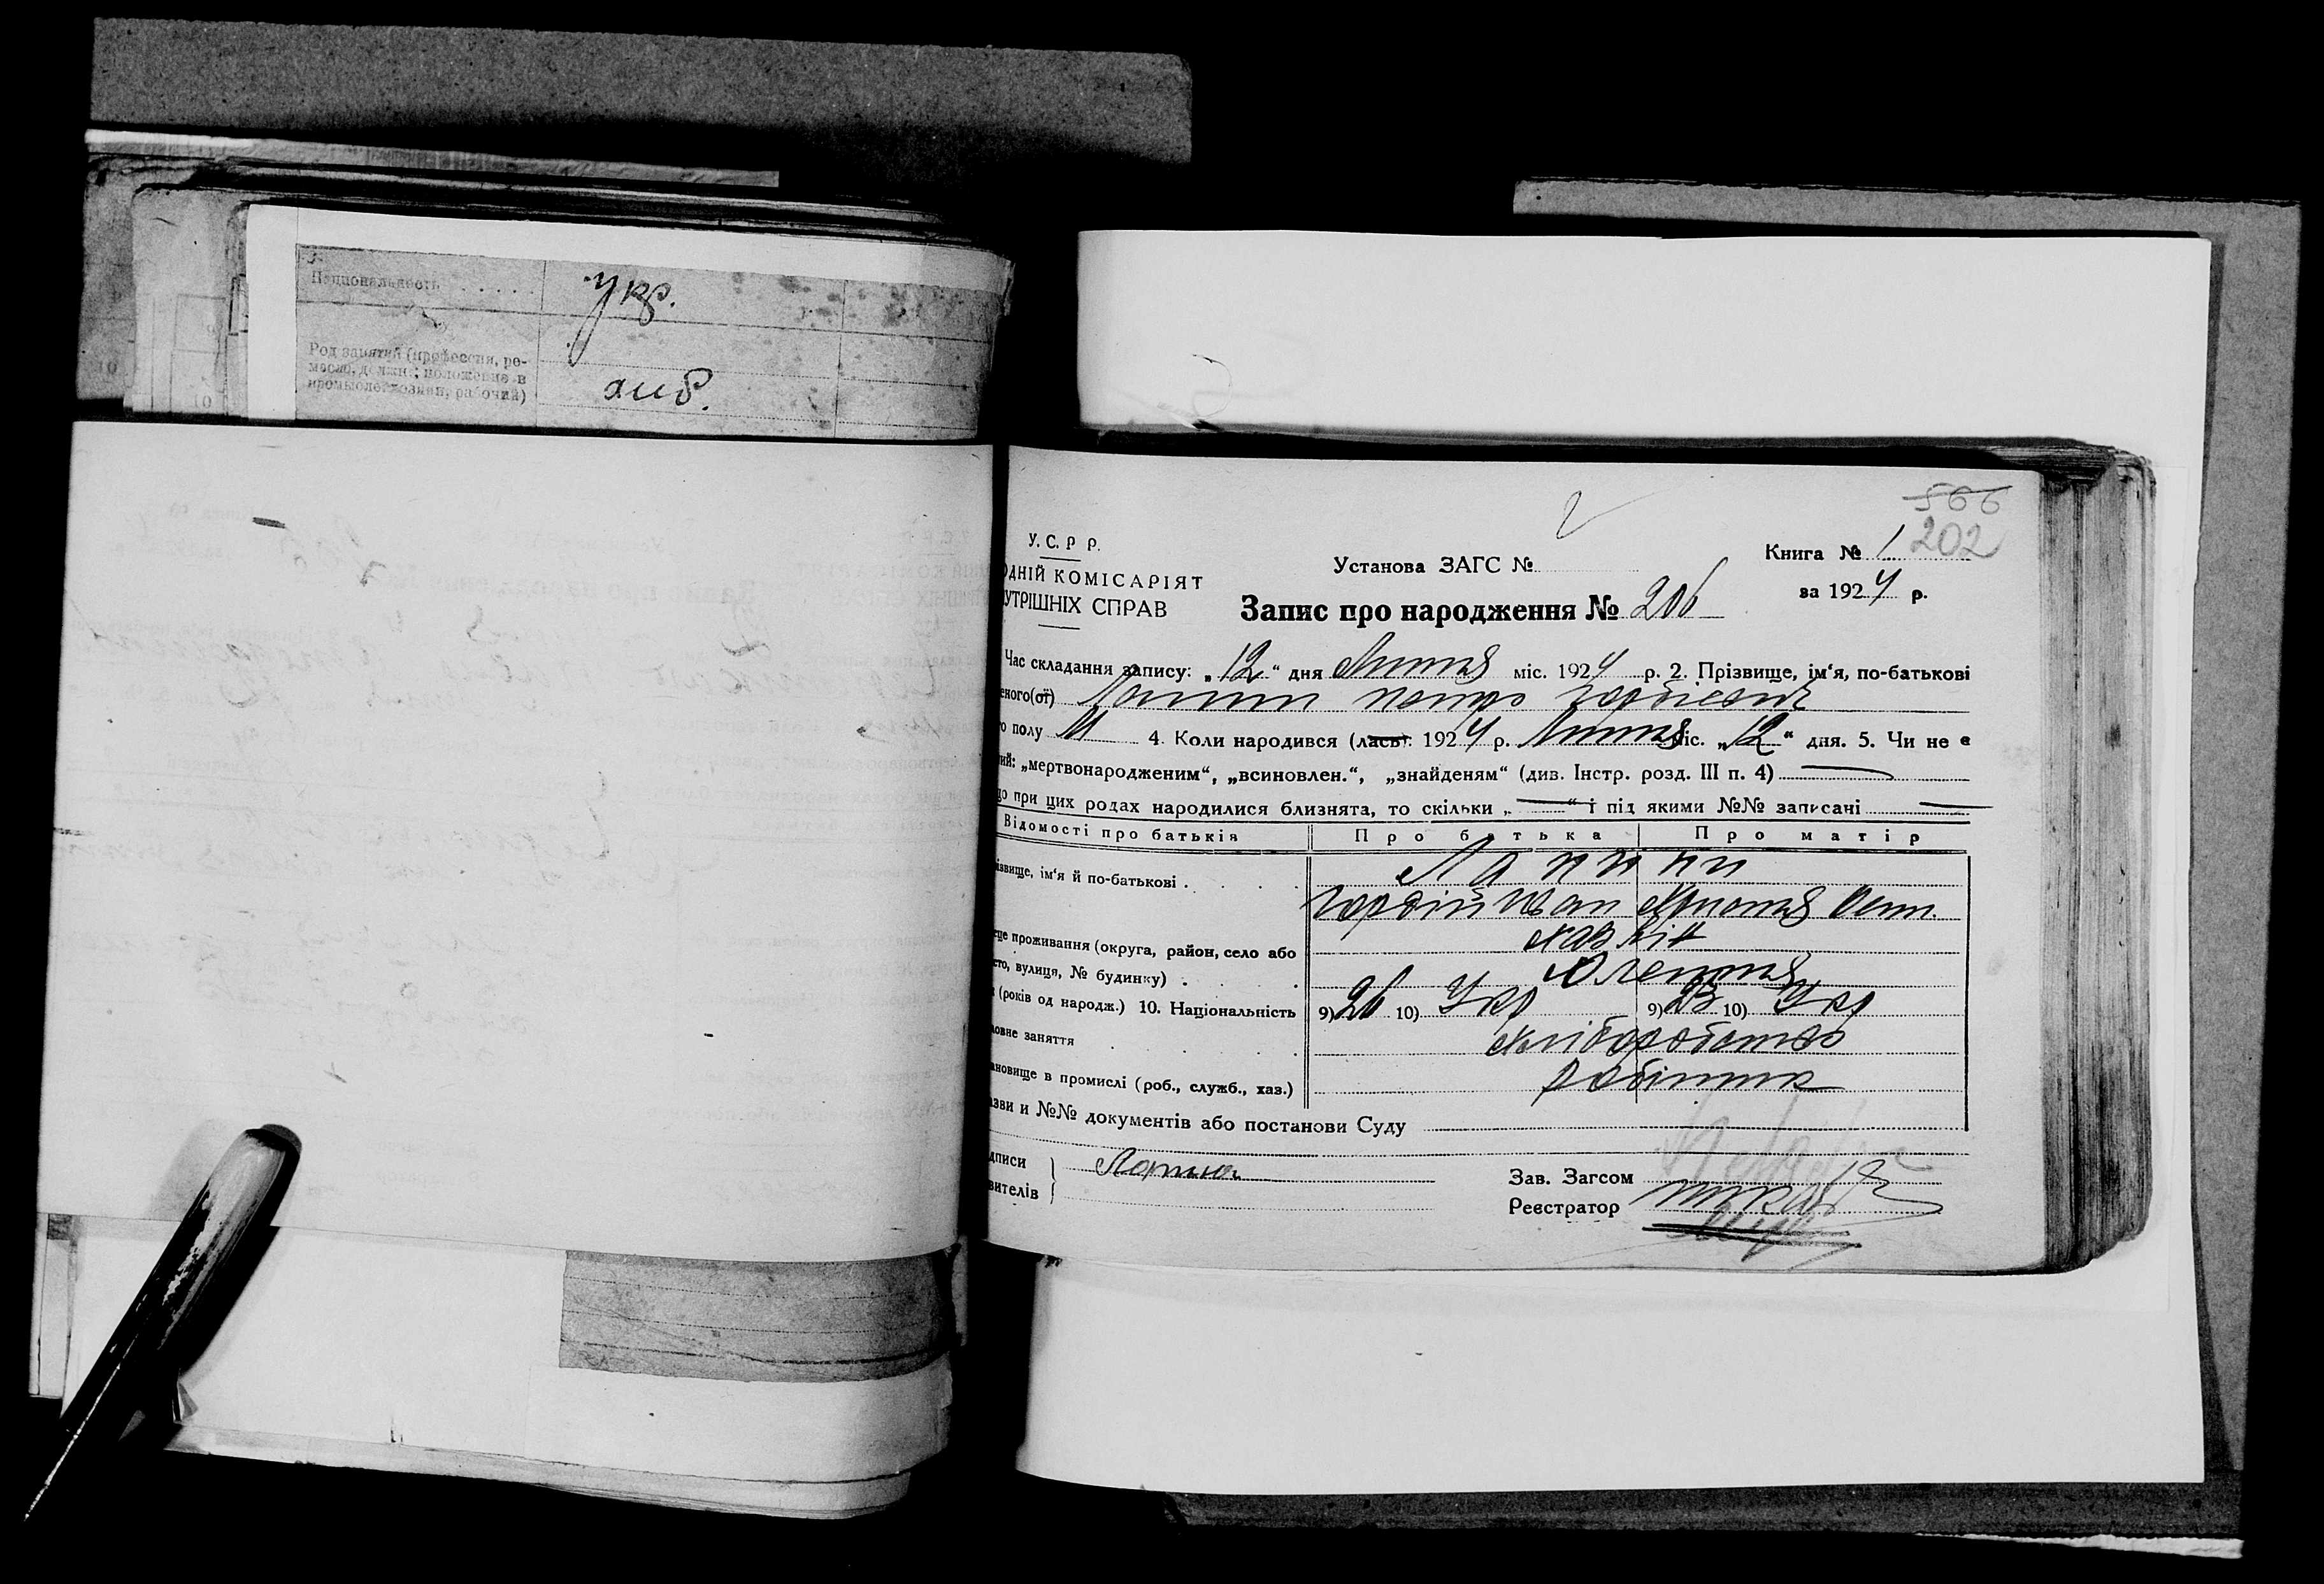 Национальность . . . . .
укр.
Род занятий (профессия, ре-
хліб.
566
У.С.Р Р.
Установа ЗАГС №
Книга № 1
202
ОДНІЙ КОМІСАРІЯТ
УТРІШНІХ СПРАВ
за 1924 р.
Запис про народження № 206
Час складання запису: „12“ дня Липня міс. 1924 р. 2. Прізвище, ім‘я, по-батькові
еного(ої) Лапин Петро Гордієвич
о полу М 4. Коли народився (лась): 1924 р. Липня міс. „12“ дня. 5. Чи не є
ий: „мертвонародженим“, „всиновлен.“, „знайденям“ (див. Інстр. розд. III п. 4)
що при цих родах народилися близнята, то скільки „—“ і під якими №№ записані —
Відомості про батьків Про батька Про матір
ізвище, ім‘я й по-батькові . . . .
Гордій Іван
еце проживання (округа, район, село або
сто, вулиця, № будинку) . . . .
(років од народж.) 10. Національність 9) 26 10) Укр 9) 23 10) Укр
ловне заняття . . . . . Хліборобство
ановище в промислі (роб., служб., хаз.) робітник
азви и №№ документів або постанови Суду
дписи
вителів
Зав. Загсом
Реєстратор